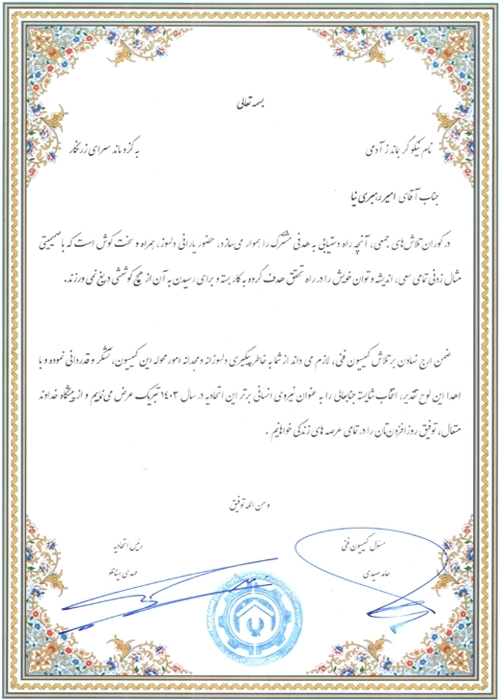 بسمه تعالی
نام نیکو گر بماند ز آدمی به کزو ماند سرای زرنگار
جناب آقای امیر رهبری نیا
در کوران تلاش‌های جمعی، آنچه راه دستیابی به هدفی مشترک را هموار می‌سازد، حضور یارانی دلسوز، همراه و سخت کوش است که با صمیمیتی
مثال زدنی تمامی سعی، اندیشه و توان خویش را در راه تحقق هدف گروه به کار بسته و برای رسیدن به آن از هیچ کوششی دریغ نمی ورزند.
ضمن ارج نهادن بر تلاش کمیسیون فنی، لازم می داند از شما به خاطر پیگیری دلسوزانه و مجدانه امور محوله این کمیسیون، تشکر و قدردانی نموده و با
اهدا این لوح تقدیر، انتخاب شایسته جنابعالی را به عنوان نیروی انسانی برتر این اتحادیه در سال ۱۴۰۳ تبریک عرض می نماییم و از پیشگاه خداوند
متعال، توفیق روز افزون‌تان را در تمامی عرصه های زندگی خواهانیم .
و من الله توفیق
مسئول کمیسیون فنی رئیس اتحادیه
حامد صیدی مهدی